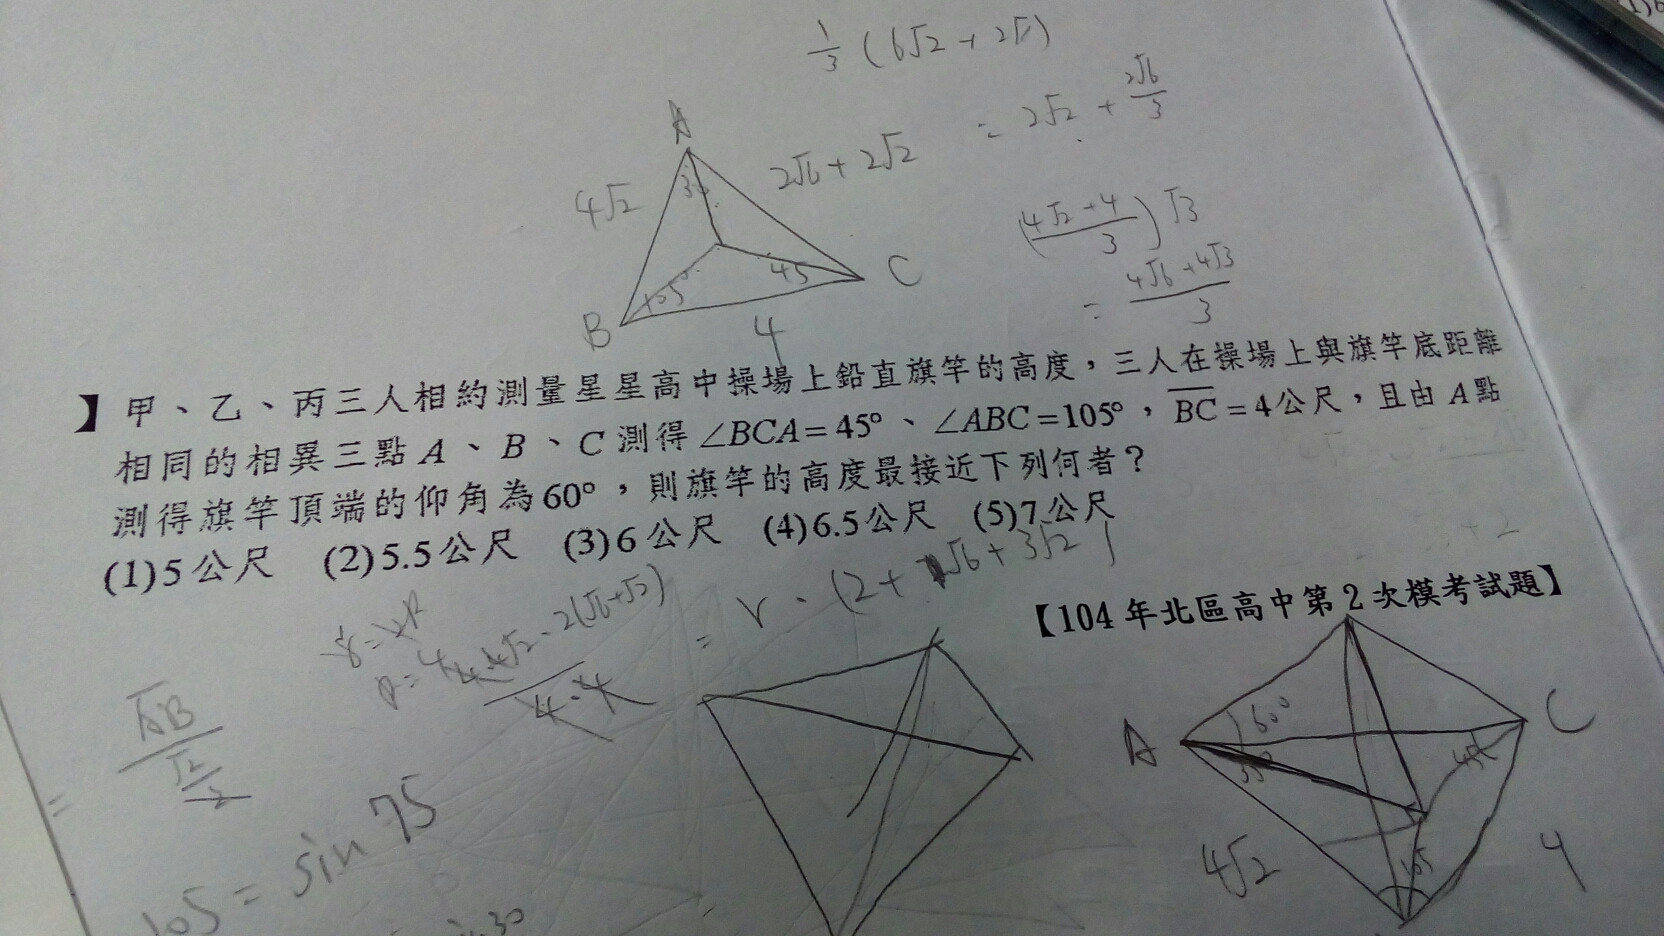 1/3 (6√2 + 2√
= 2√2 + 2√6/3
A
4√2
2√6 + 2√2
30
(4√2+4/3)√3
= 4√6+4√3/3
105°
45
C
B
4
】甲、乙、丙三人相約測量星星高中操場上鉛直旗竿的高度，三人在操場上與旗竿底距離
相同的相異三點 A、B、C 測得∠BCA=45°、∠ABC=105°，BC=4公尺，且由 A 點
測得旗竿頂端的仰角為60°，則旗竿的高度最接近下列何者？
(1)5公尺 (2)5.5公尺 (3)6公尺 (4)6.5公尺 (5)7公尺
【104年北區高中第2次模考試題】
= r · (2+ √6+3√2)
4·4
AB
√2/2
=
105 = sin 75
30
A
60°
C
4√2
105
4